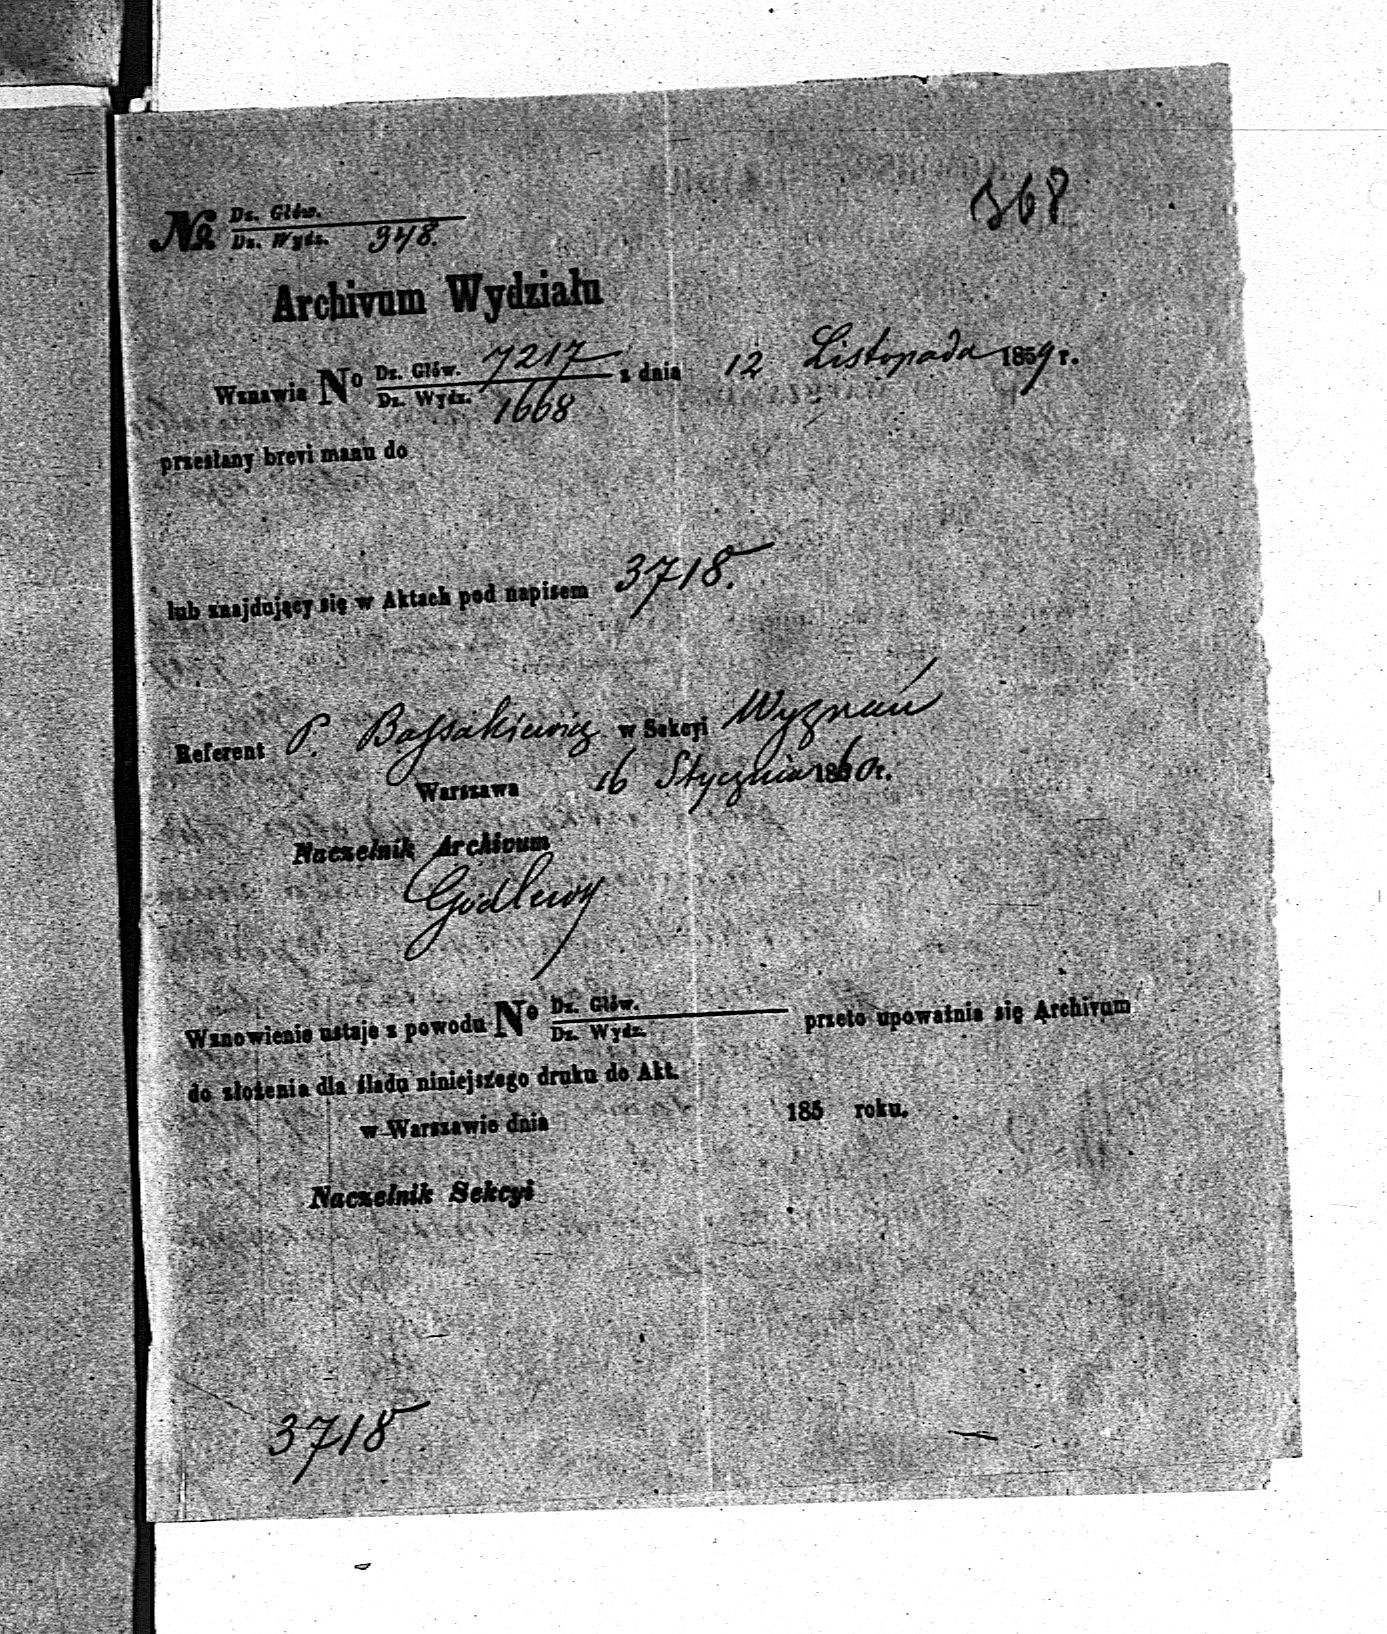 368
No Dz. Głów.
Dz. Wydz. 948.
Archivum Wydziału
Wznawia No Dz. Głów. 7217 z dnia 12 Listopada 1859 r.
Dz. Wydz. 1668
przesłany brevi manu do
lub znajdujący się w Aktach pod napisem 3718.
Referent P. Bassakiewicz w Sekcyi Wyznań
Warszawa 16 Stycznia 1860 r.
Naczelnik Archivum
Wznowienie ustaje z powodu No Dz. Głów. przeto upoważnia się Archivum
Dz. Wydz.
do złożenia dla śladu niniejszego druku do Akt.
w Warszawie dnia 185 roku.
Naczelnik Sekcyi
3718